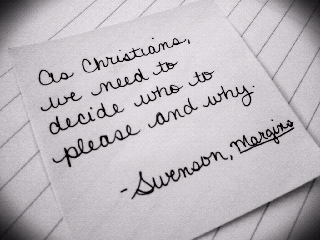 As Christians,
we need to
decide who to
please and why.
-Swenson, Margins